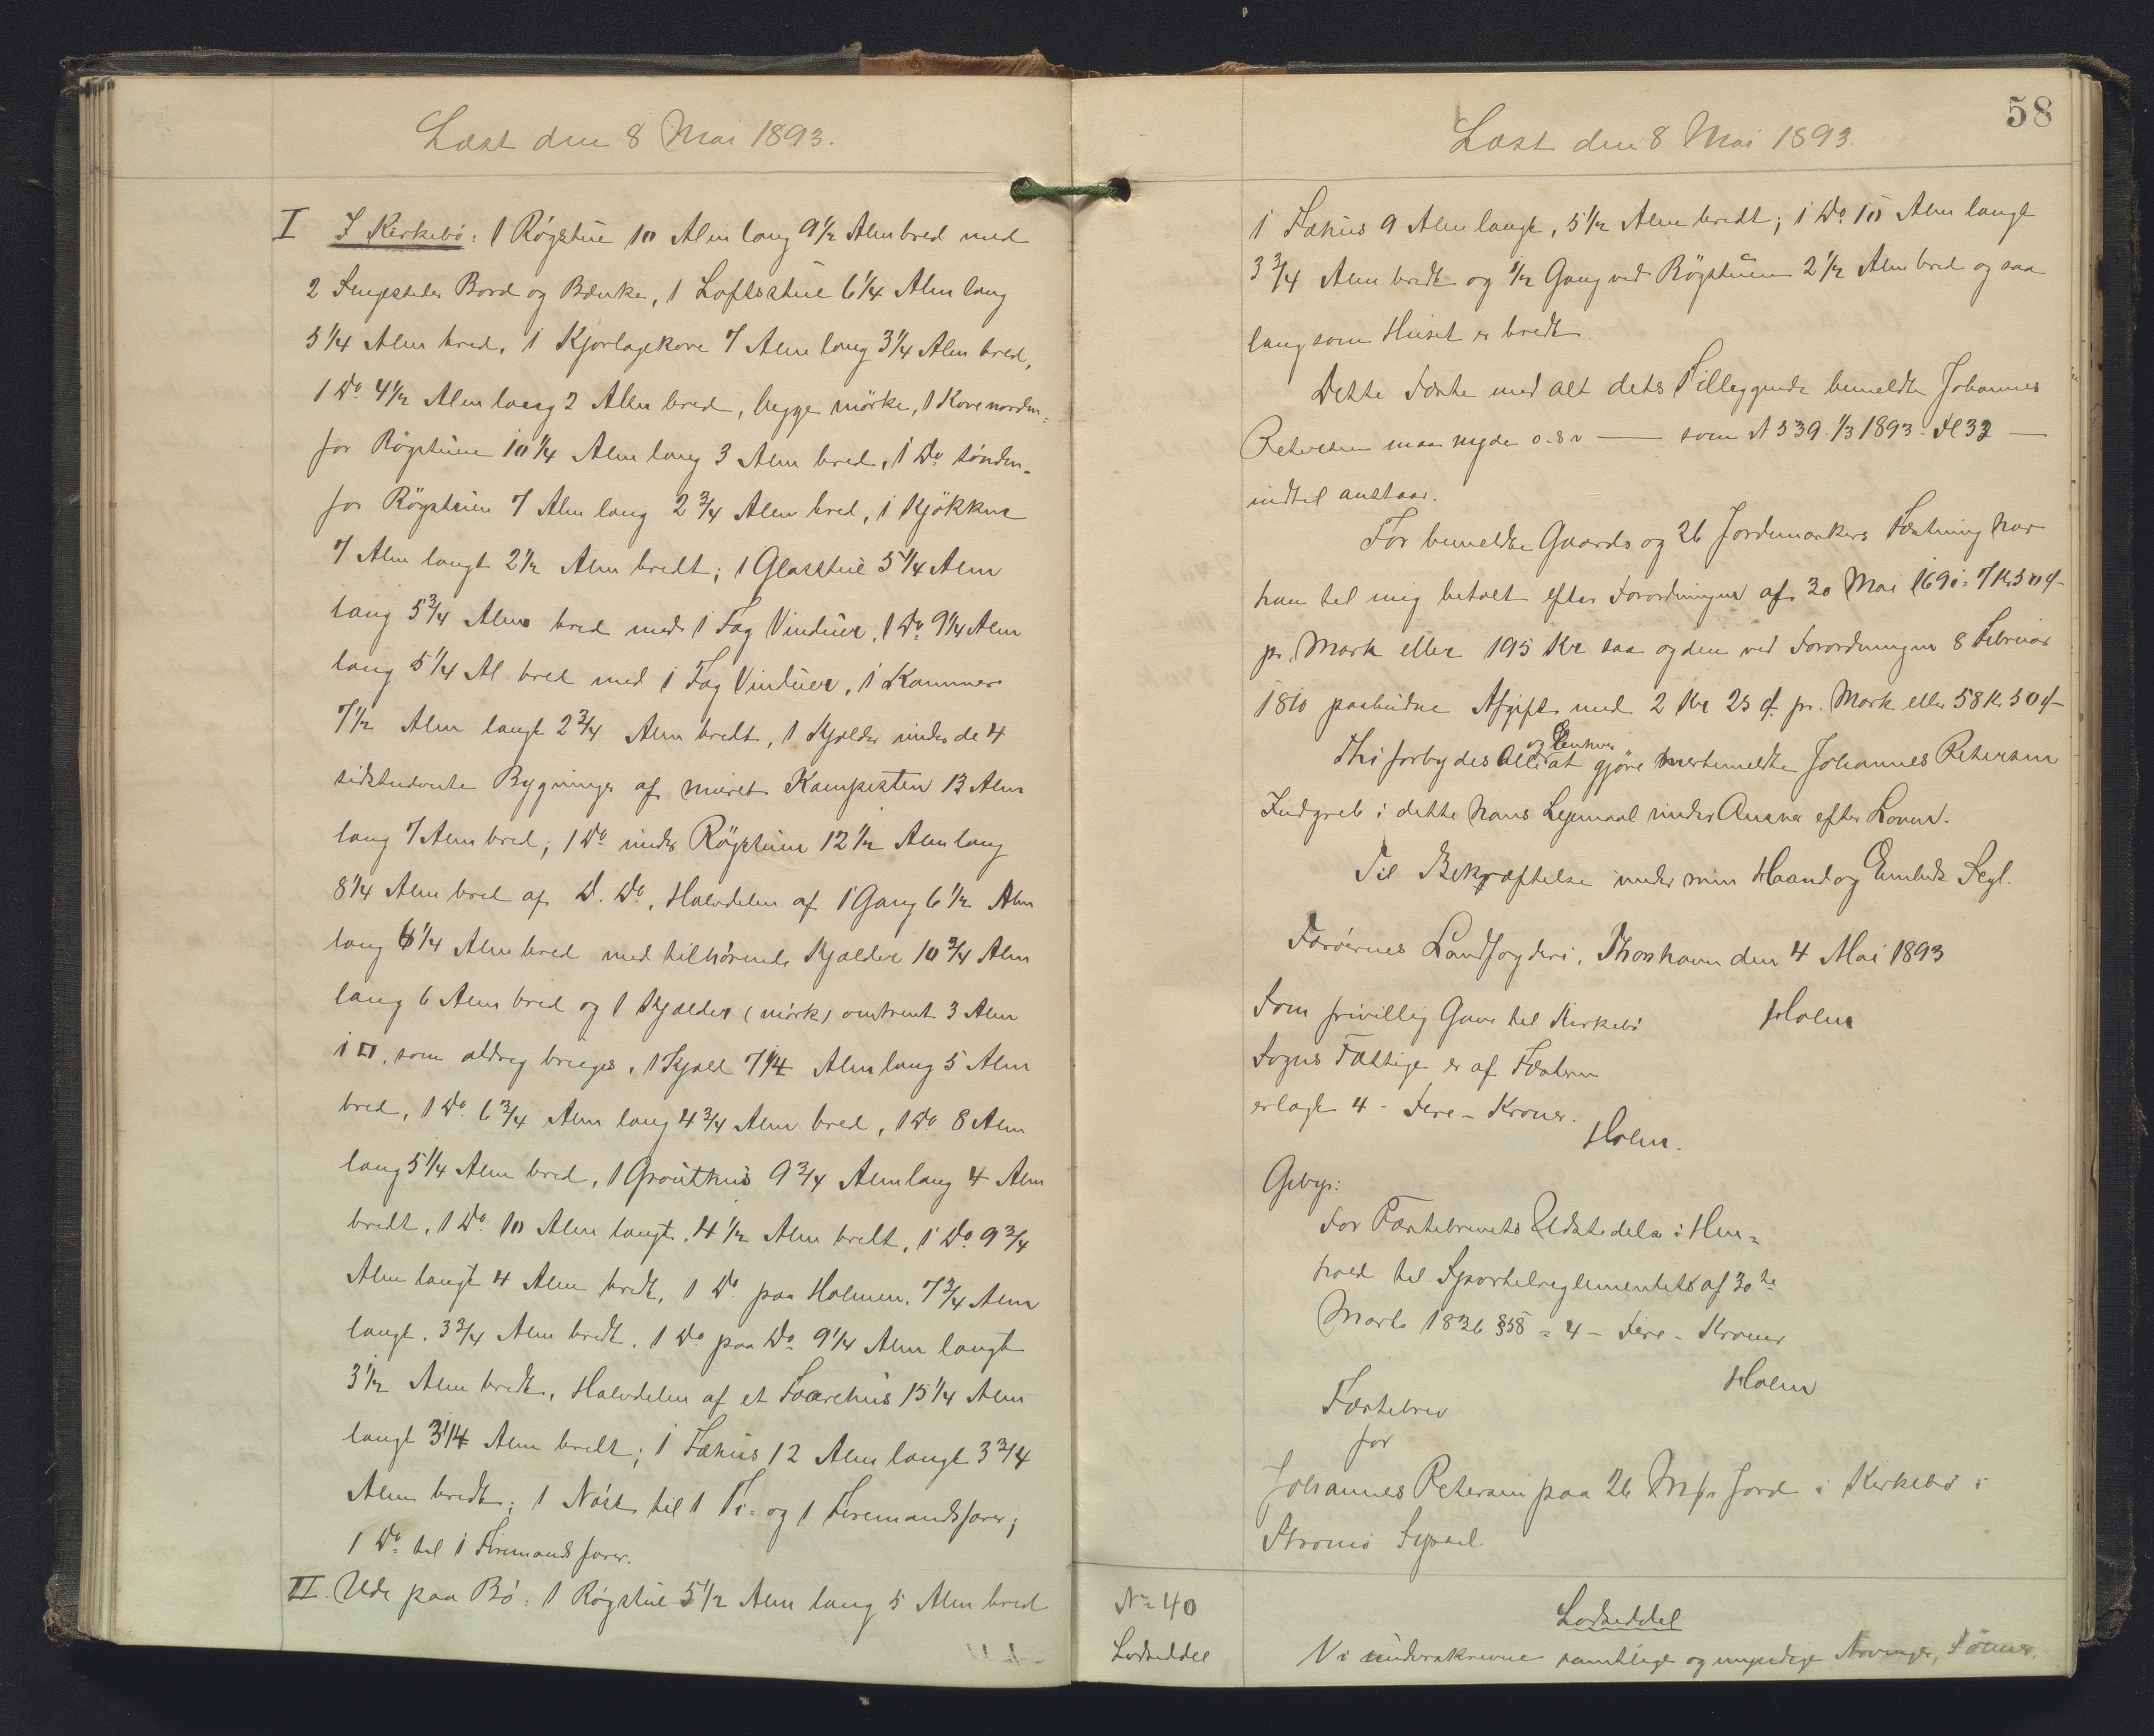 Læst den 8 Mai 1893.
I I Kirkebö: 1 Røgstue 10 Alen lang 9½ Alen bred med
2 Sengesteder Bord og Bænke, 1 Loftsstue 6¼ Alen lang
5¼ Alen bred, 1 Kjørlagekove 7 Alen lang 3¼ Alen bred,
1 Do 4½ Alen lang 2 Alen bred, begge mörke, 1 Kove norden=
for Røgstuen 10¼ Alen lang 3 Alen bred, 1 Do sönden=
for Rögstuen 7 Alen lang 2¾ Alen bred, 1 Kjökken
7 Alen langt 2½ Alen bredt; 1 Glasstue 5¼ Alen
lang 5¾ Alen bred med 1 Fag Vinduer, 1 Do 9¼ Alen
lang 5¼ Al bred med 1 Fag Vinduer, 1 Kammer
7½ Alen langt 2¾ Alen bredt, 1 Kjelder under de 4
sidstnævnte Bygninger af muret Kampesten 13 Alen
lang 7 Alen bred; 1 Do under Røgstuen 12½ Alen lang
8¼ Alen bred af D. Do, Halvdelen af 1 Gang 6½ Alen
lang 6¼ Alen bred med tilhørende Kjælder 10¾ Alen
lang 6 Alen bred og 1 Kjælder (mörk) omtrent 3 Alen
i □, som aldrig bruges, 1 Hjald 7¼ Alen lang 5 Alen
bred, 1 Do 6¾ Alen lang 4¾ Alen bred, 1 Do 8 Alen
lang 5¼ Alen bred, 1 Grouthus 9¾ Alen lang 4 Alen
bredt, 1 Do 10 Alen langt, 4½ Alen bredt, 1 Do 9¾
Alen langt 4 Alen bredt, 1 Do paa Holmen, 7¾ Alen
langt, 3¾ Alen bredt, 1 Do paa Do 9¼ Alen langt
3½ Alen bredt, Halvdelen af et Faarehus 15¼ Alen
langt 3¼ Alen bredt; 1 Fæhus 12 Alen langt 3¾
Alen bredt; 1 Nöst til 1 Ti= og 1 Firemandsfarer;
1 Do til 1 Firemandsfarer.
II. Ude paa Bö: 1 Røgstue 5½ Alen lang 5 Alen bred
58
Læst den 8 Mai 1893.
1 Fæhus 9 Alen langt, 5½ Alen bredt; 1 Do 10 Alen langt
3¾ Alen bredt og ½ Gang ved Rögstuen 2½ Alen bred og saa
lang som Huset er bredt.
Dette Fæste med alt dets Tilleggende bemeldte Johannes
Petersen maa nyde o.s.v — som N 539. 1/3 1893. Fl 32 —
indtil anstaar.
For bemeldte Gaards og 26 Jordemarkers Fæstning har
han til mig betalt efter Forordningen af 30 Mai 1691: 7 Kr 50 Ø
pr. Mark eller 195 Kr saa og den ved Forordningen 8 Februar
1810 paabudne Afgift med 2 Kr 25 Ø pr. Mark eller 58 Kr 50 Ø
Thi forbydes Alle og Enhver at gjöre merbemeldte Johannes Petersen
Indgreb i dette hans Lejemaal under Ansvar efter Loven.
Til Bekræftelse under min Haand og Embeds Segl.
Færöernes Landfogderi, Thorshavn den 4 Mai 1893
Holm
Som frivillig Gave til Kirkebö
Sogns Fattige er af Fæsteren
erlagt 4 - Fire - Kroner.
Holm.
Gebyr:
For Fæstebrevets Udstedelse i Hen=
hold til Sportelreglementets af 30te
Marts 1836 §58 = 4 - Fire - Kroner
Holm
Fæstebrev
for
Johannes Petersen paa 26 Mk Jord i Kirkebö i
Strömö Syssel.
No 40
Lodseddel
Lodseddel
Vi underskrevne samtlige og myndige Arvinger, Sönner,